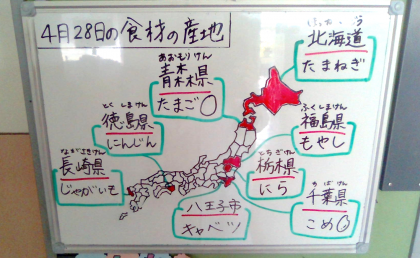 4月28日の食材の産地
ほっかいどう
北海道
たまねぎ
あおもりけん
青森県
たまご〇
とくしまけん
徳島県
にんじん
ふくしまけん
福島県
もやし
ながさきけん
長崎県
じゃがいも
とちぎけん
栃木県
にら
ちばけん
千葉県
こめ〇
八王子市
キャベツ